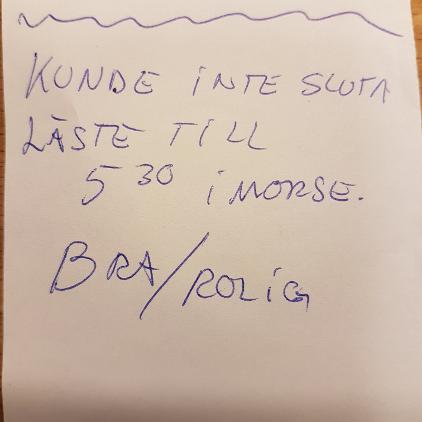 KUNDE INTE SLUTA
LÄSTE TILL
5 30 I MORSE.
BRA/ROLIG